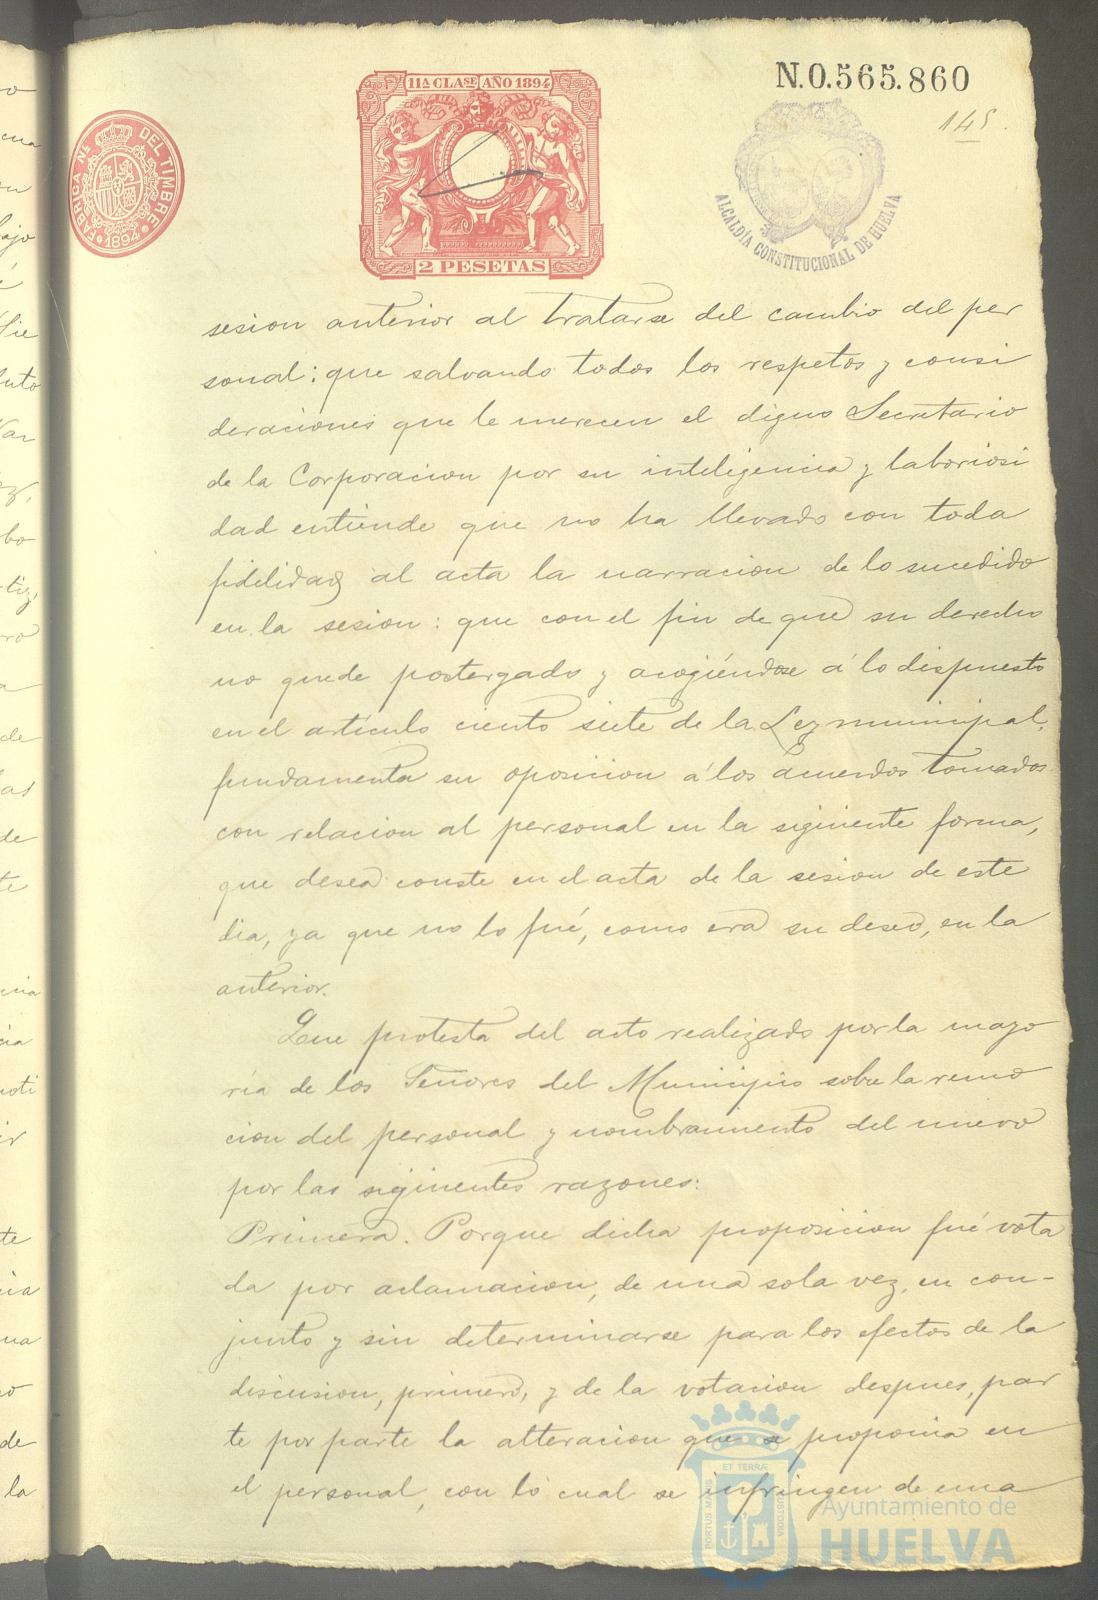 11ª CLASE AÑO 1894
2 PESETAS
FÁBRICA NAL. DEL TIMBRE
1894
N.0.565.860
145.
ALCALDÍA CONSTITUCIONAL DE HUELVA
sesion anterior al tratarse del cambio del per
sonal: que salvando todos los respetos y consi
deraciones que le merecen el digno Secretario
de la Corporacion por su inteligencia y laboriosi
dad entiende que no ha llevado con toda
fidelidad al acta la narracion de lo sucedido
en la sesion: que con el fin de que su derecho
no quede postergado y acogiéndose á lo dispuesto
en el artículo ciento siete de la Ley municipal,
fundamenta su oposicion á los acuerdos tomados
con relacion al personal en la siguiente forma,
que desea conste en el acta de la sesion de este
dia, ya que no lo fué, como era su deseo, en la
anterior.
Que protesta del acto realizado por la mayo
ría de los Señores del Municipio sobre la remo
cion del personal y nombramiento del nuevo
por las siguientes razones:
Primera. Porque dicha proposicion fué vota
da por aclamacion, de una sola vez, en con-
junto y sin determinarse para los efectos de la
discusion, primero, y de la votacion despues, par
te por parte la alteracion que se proponia en
el personal, con lo cual se infringen de una
ET TERRÆ
PORTUS MARIS
CUSTODIA
Ayuntamiento de
HUELVA